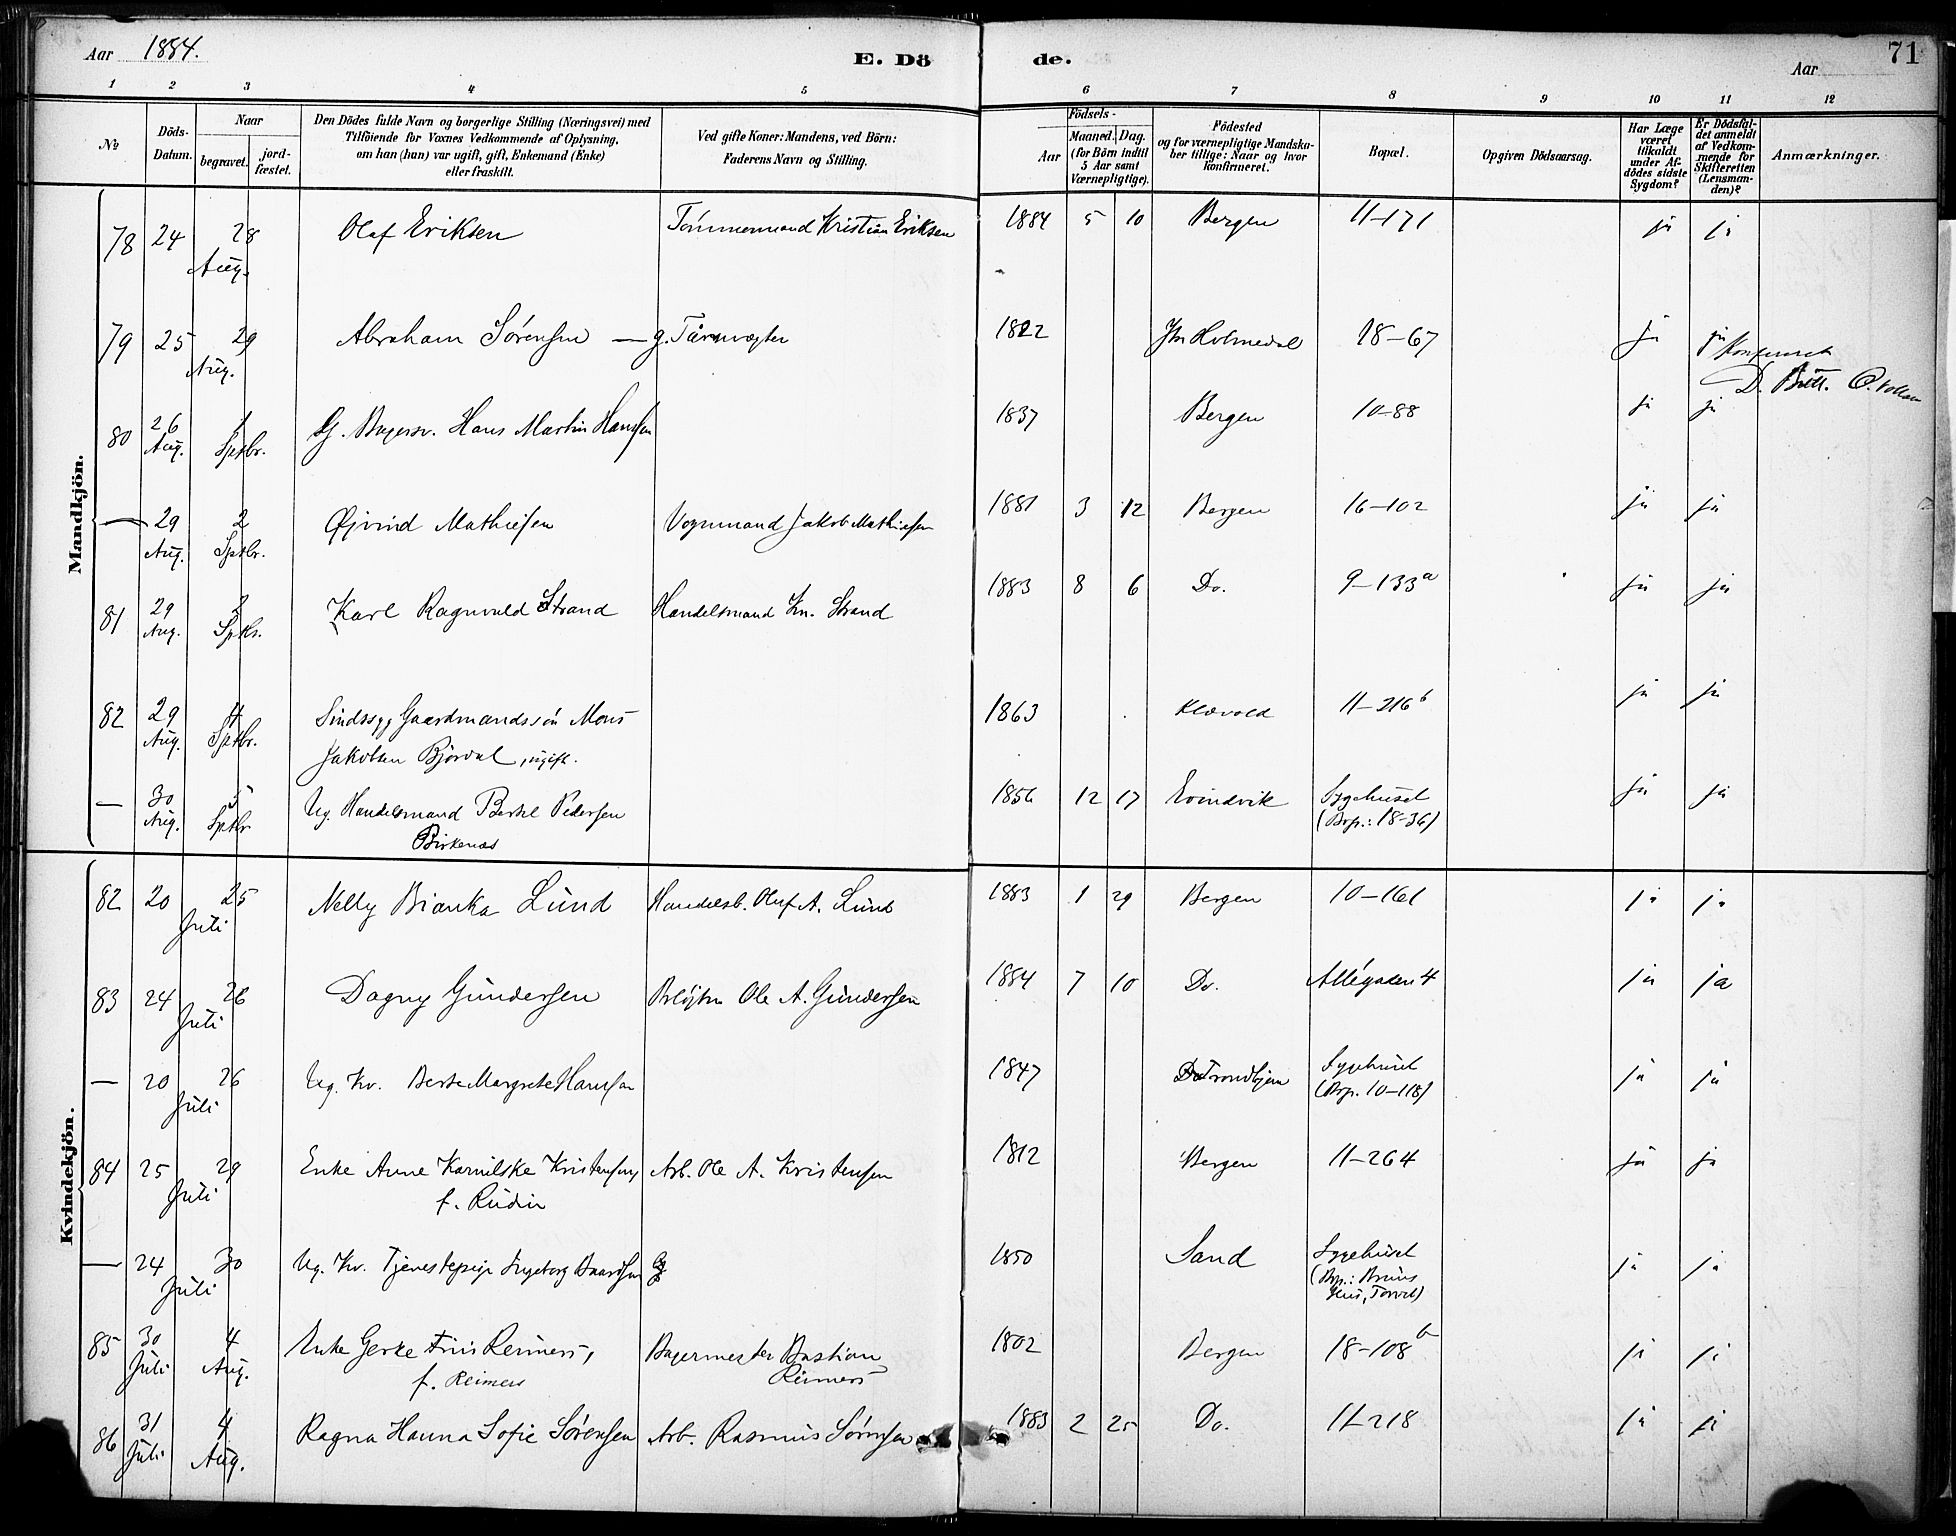 Aar 1884. E. Dö de. Aar 71
1 2 3 4 5 6 7 8 9 10 11 12
№
Döds-
Datum.
Naar
begravet. jord-
fæstet.
Den Dödes fulde Navn og borgerlige Stilling (Næringsvei) med
Tilföiende for Voxnes Vedkommende af Oplysning,
om han (hun) var ugift, gift, Enkemand (Enke)
eller fraskilt.
Ved gifte Koner: Mandens, ved Börn:
Faderens Navn og Stilling.
Födsels-
Aar Maaned. Dag.
(for Börn indtil
5 Aar samt
Værnepligtige).
Födested
og for værnepligtige Mandska-
ber tillige: Naar og hvor
konfirmeret.
Bopæl.
Opgiven Dödsaarsag.
Har Læge
været
tilkaldt
under Af-
dödes sidste
Sygdom?
Er Dödsfal-
det anmeldt
af Vedkom-
mende for
Skifteretten
(Lensman-
den)?
Anmærkninger.
Mandkjön.
78 24 28 Olaf Eriksen Tømmermand Kristian Eriksen 1884 5 10 Bergen 11-171 ja ja
Aug.
79 25 29 Abraham Sørensen — g. Taarnvægter 1822 Ytr Holmedal 18-67 ja ja
Aug.
D. Britt.
80 26 1 G. Bagersv. Hans Martin Hanssen 1837 Bergen 10-88 ja ja
Aug. Sptbr.
— 29 2 Øjvind Mathiesen Vognmand Jakob Mathiesen 1881 3 12 Bergen 16-102 ja ja
Aug. Sptbr.
81 29 2 Karl Ragnvald Strand Handelsmand Kn. Strand 1883 8 6 Do. 9-133a ja ja
Aug. Sptbr.
82 29 4 Sindssyg Gaardmandssøn Mons 1863 Klævold 11-216b ja ja
Aug. Sptbr. Jakobsen Bjørdal, ugift.
— 30 5 Ug. Handelsmand Bertel Pedersen 1856 12 17 Evindvik Sygehuset ja ja
Aug. Sptbr Birkenæs (Bop.: 18-36)
Kvindekjön.
82 20 25 Nelly Bianka Lund Handelsb. Oluf A. Lund 1883 1 29 Bergen 10-161 ja ja
Juli
83 24 26 Dagny Gundersen Ole A. Gundersen 1884 7 10 Do. Allégaden 4 ja ja
Juli
— 20 26 Ug. Kv. Berte Margrete Hansen 1847 Trondhjem Sygehuset ja ja
Juli (Bop. 10-118)
84 25 29 Enke Anne Kornilske Kristensen, Arb. Ole A. Kristensen 1812 Bergen 11-264 ja ja
Juli f. Rudin
— 24 30 Ug. Kv. Tjenestepige Ingeborg Baardsen 1850 Sand Sygehuset ja ja
Juli (Bop.: Bruns
Hus, Torvet)
85 30 4 Enke Gerke Friis Reimers, Bagermester Bastian 1802 Bergen 18-108b ja ja
Juli Aug. f. Reimers Reimers
86 31 4 Ragna Hanna Sofie Sørensen Arb. Rasmus Sørensen 1883 2 25 Do. 11-218 ja ja
Juli Aug.